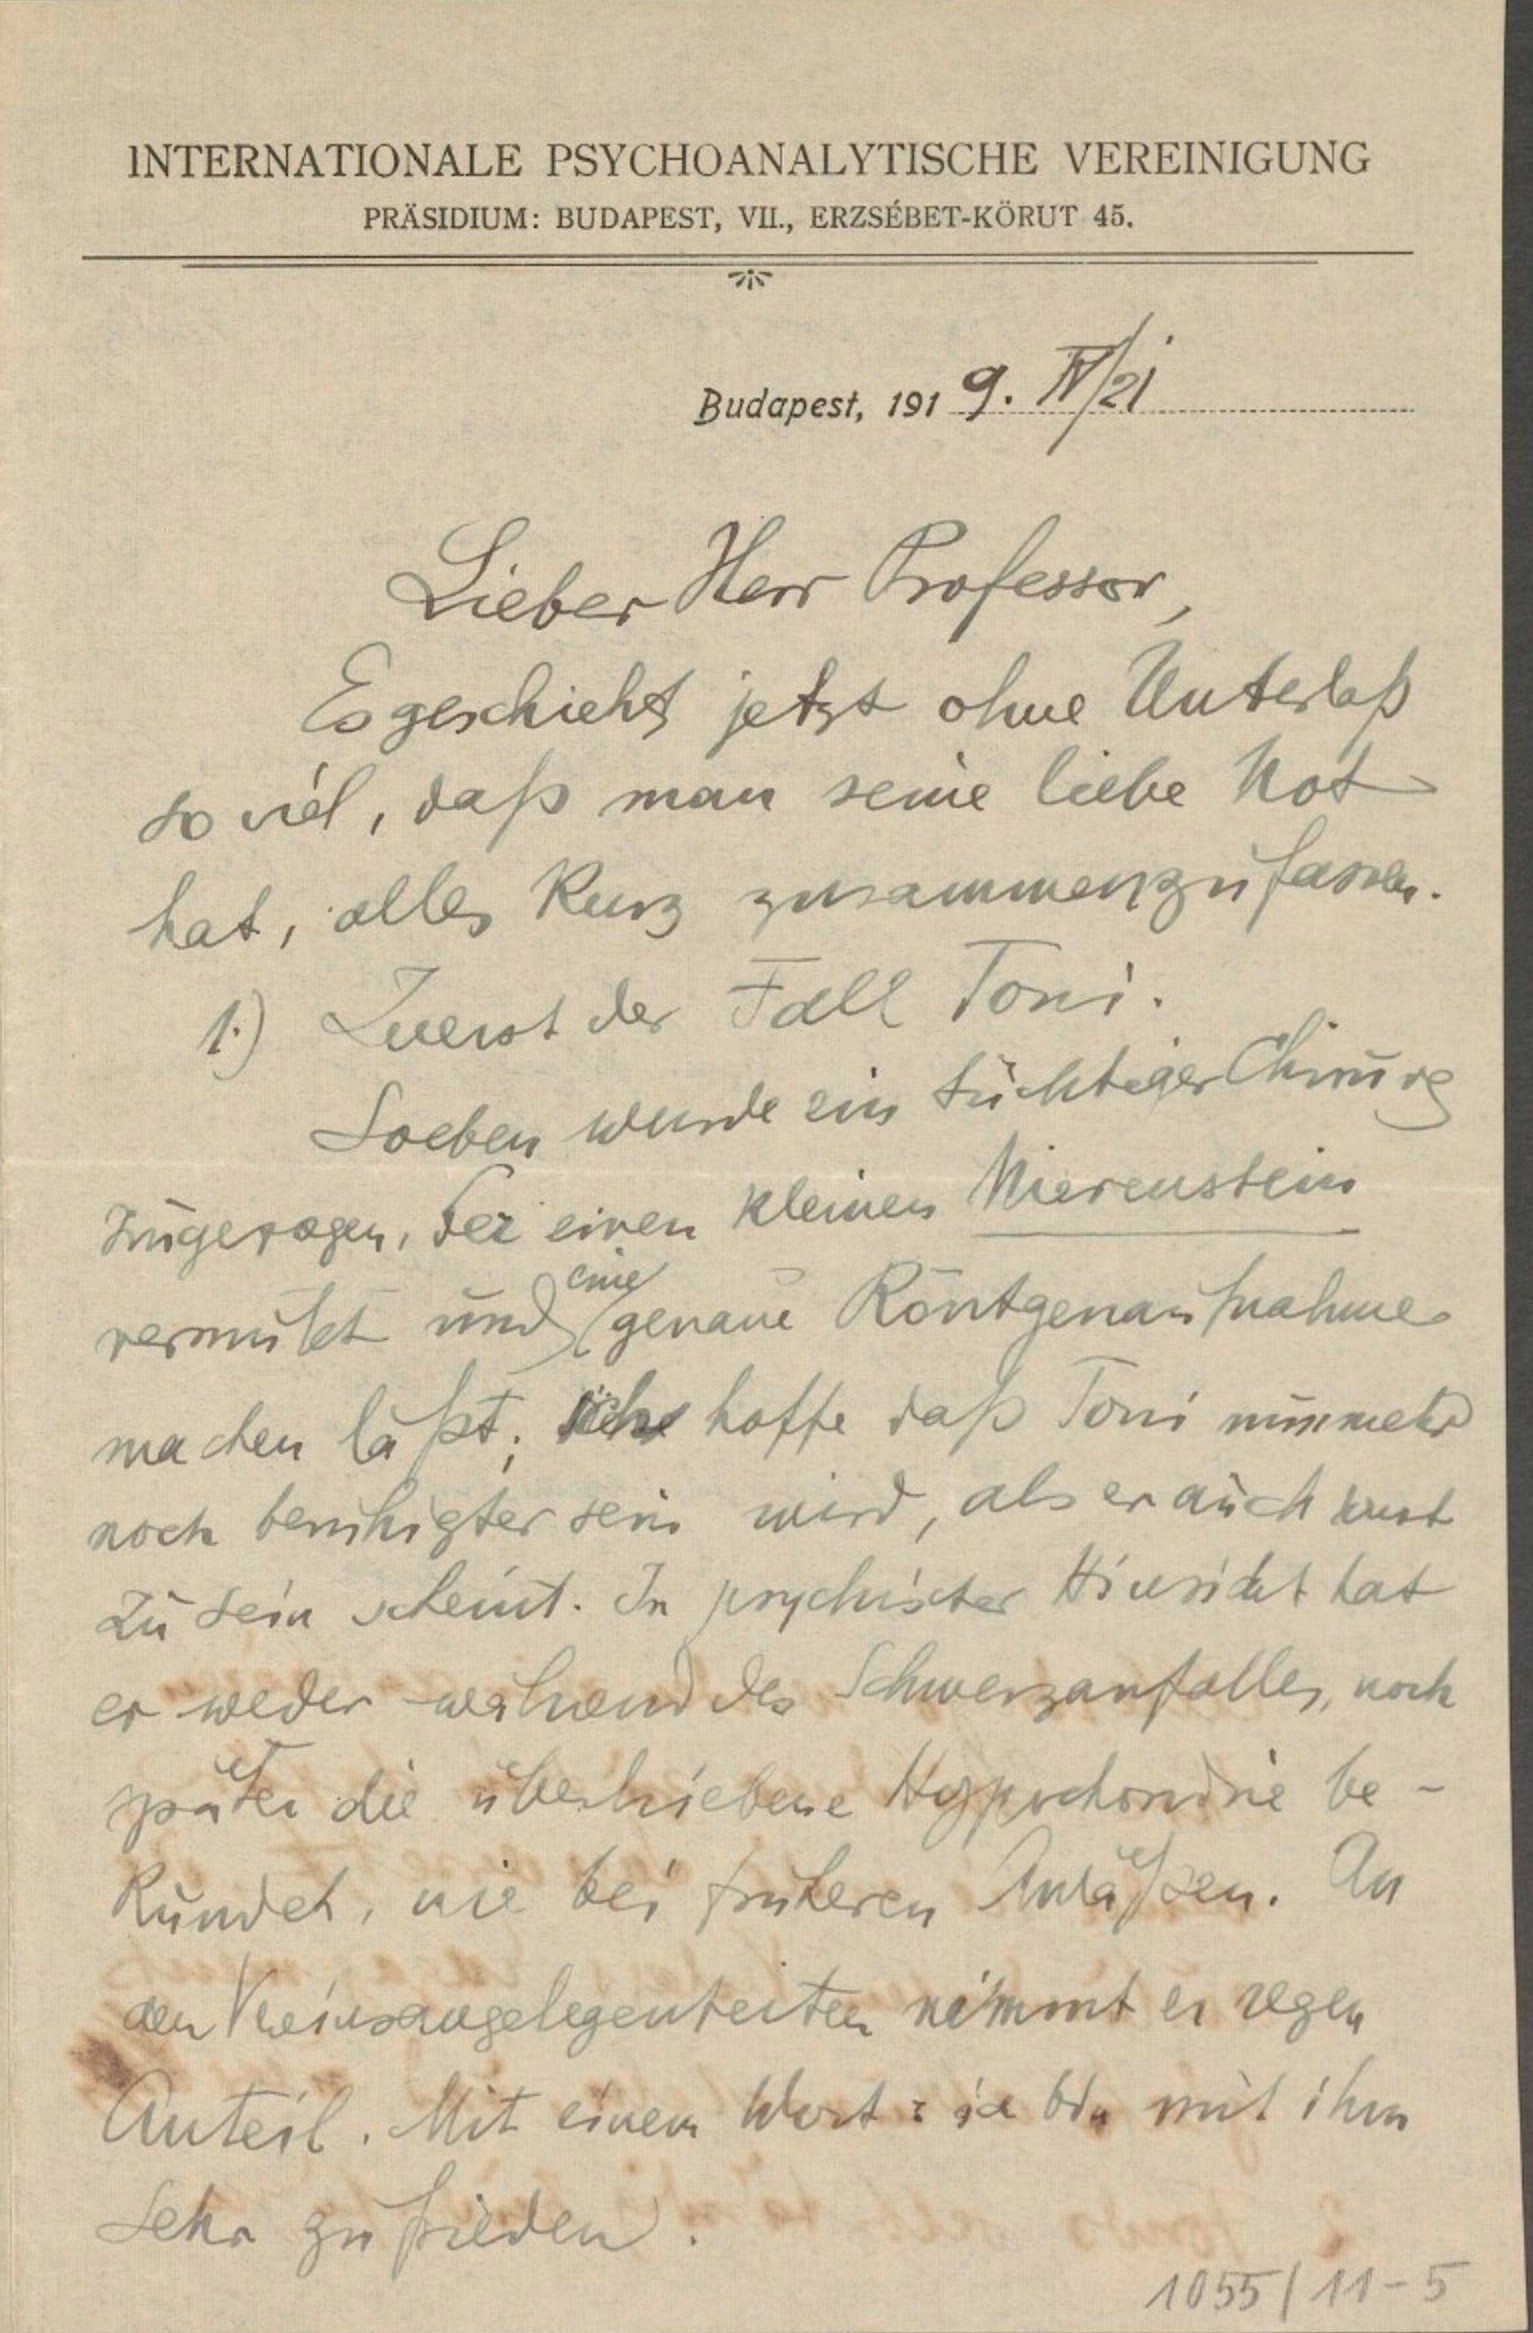 INTERNATIONALE PSYCHOANALYTISCHE VEREINIGUNG
PRÄSIDIUM: BUDAPEST, VII., ERZSÉBET-KÖRUT 45.
Budapest, 1919. IV/21
Lieber Herr Professor,
Es geschieht jetzt ohne Unterlaß
so viel, daß man seine liebe Not
hat, alles kurz zusammenzufassen.
1.) Zuerst der Fall Toni.
Soeben wurde ein tüchtiger Chirurg
zugezogen, der einen kleinen Nierenstein
vermutet und eine genaue Röntgenaufnahme
machen läßt; ich hoffe daß Toni nunmehr
noch beruhigter sein wird, als er auch sonst
zu sein scheint. In psychischer Hinsicht hat
er weder während des Schmerzanfalles, noch
später die übertriebene Hypochondrie be-
kundet, wie bei früheren Anläßen. An
den Vereinsangelegenheiten nimmt er regen
Anteil. Mit einem Wort: ich bin mit ihm
sehr zufrieden.
1055/11-5